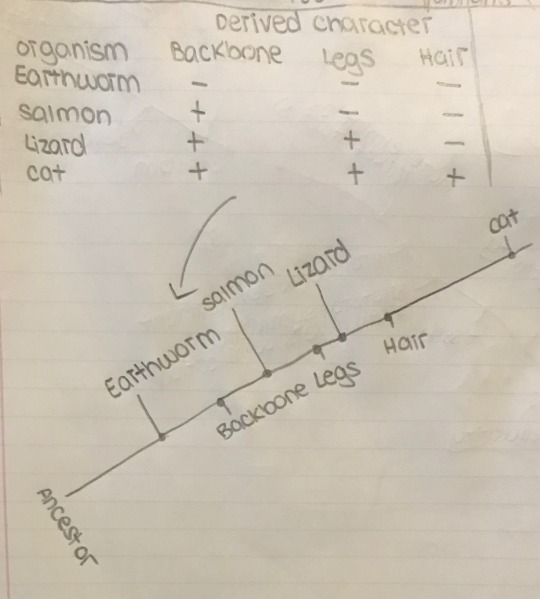 Derived character
organism Backbone Legs Hair
Earthworm - - -
salmon + - -
Lizard + + -
cat + + +
cat
Lizard
salmon
Earthworm
Hair
Legs
Backbone
Ancestor